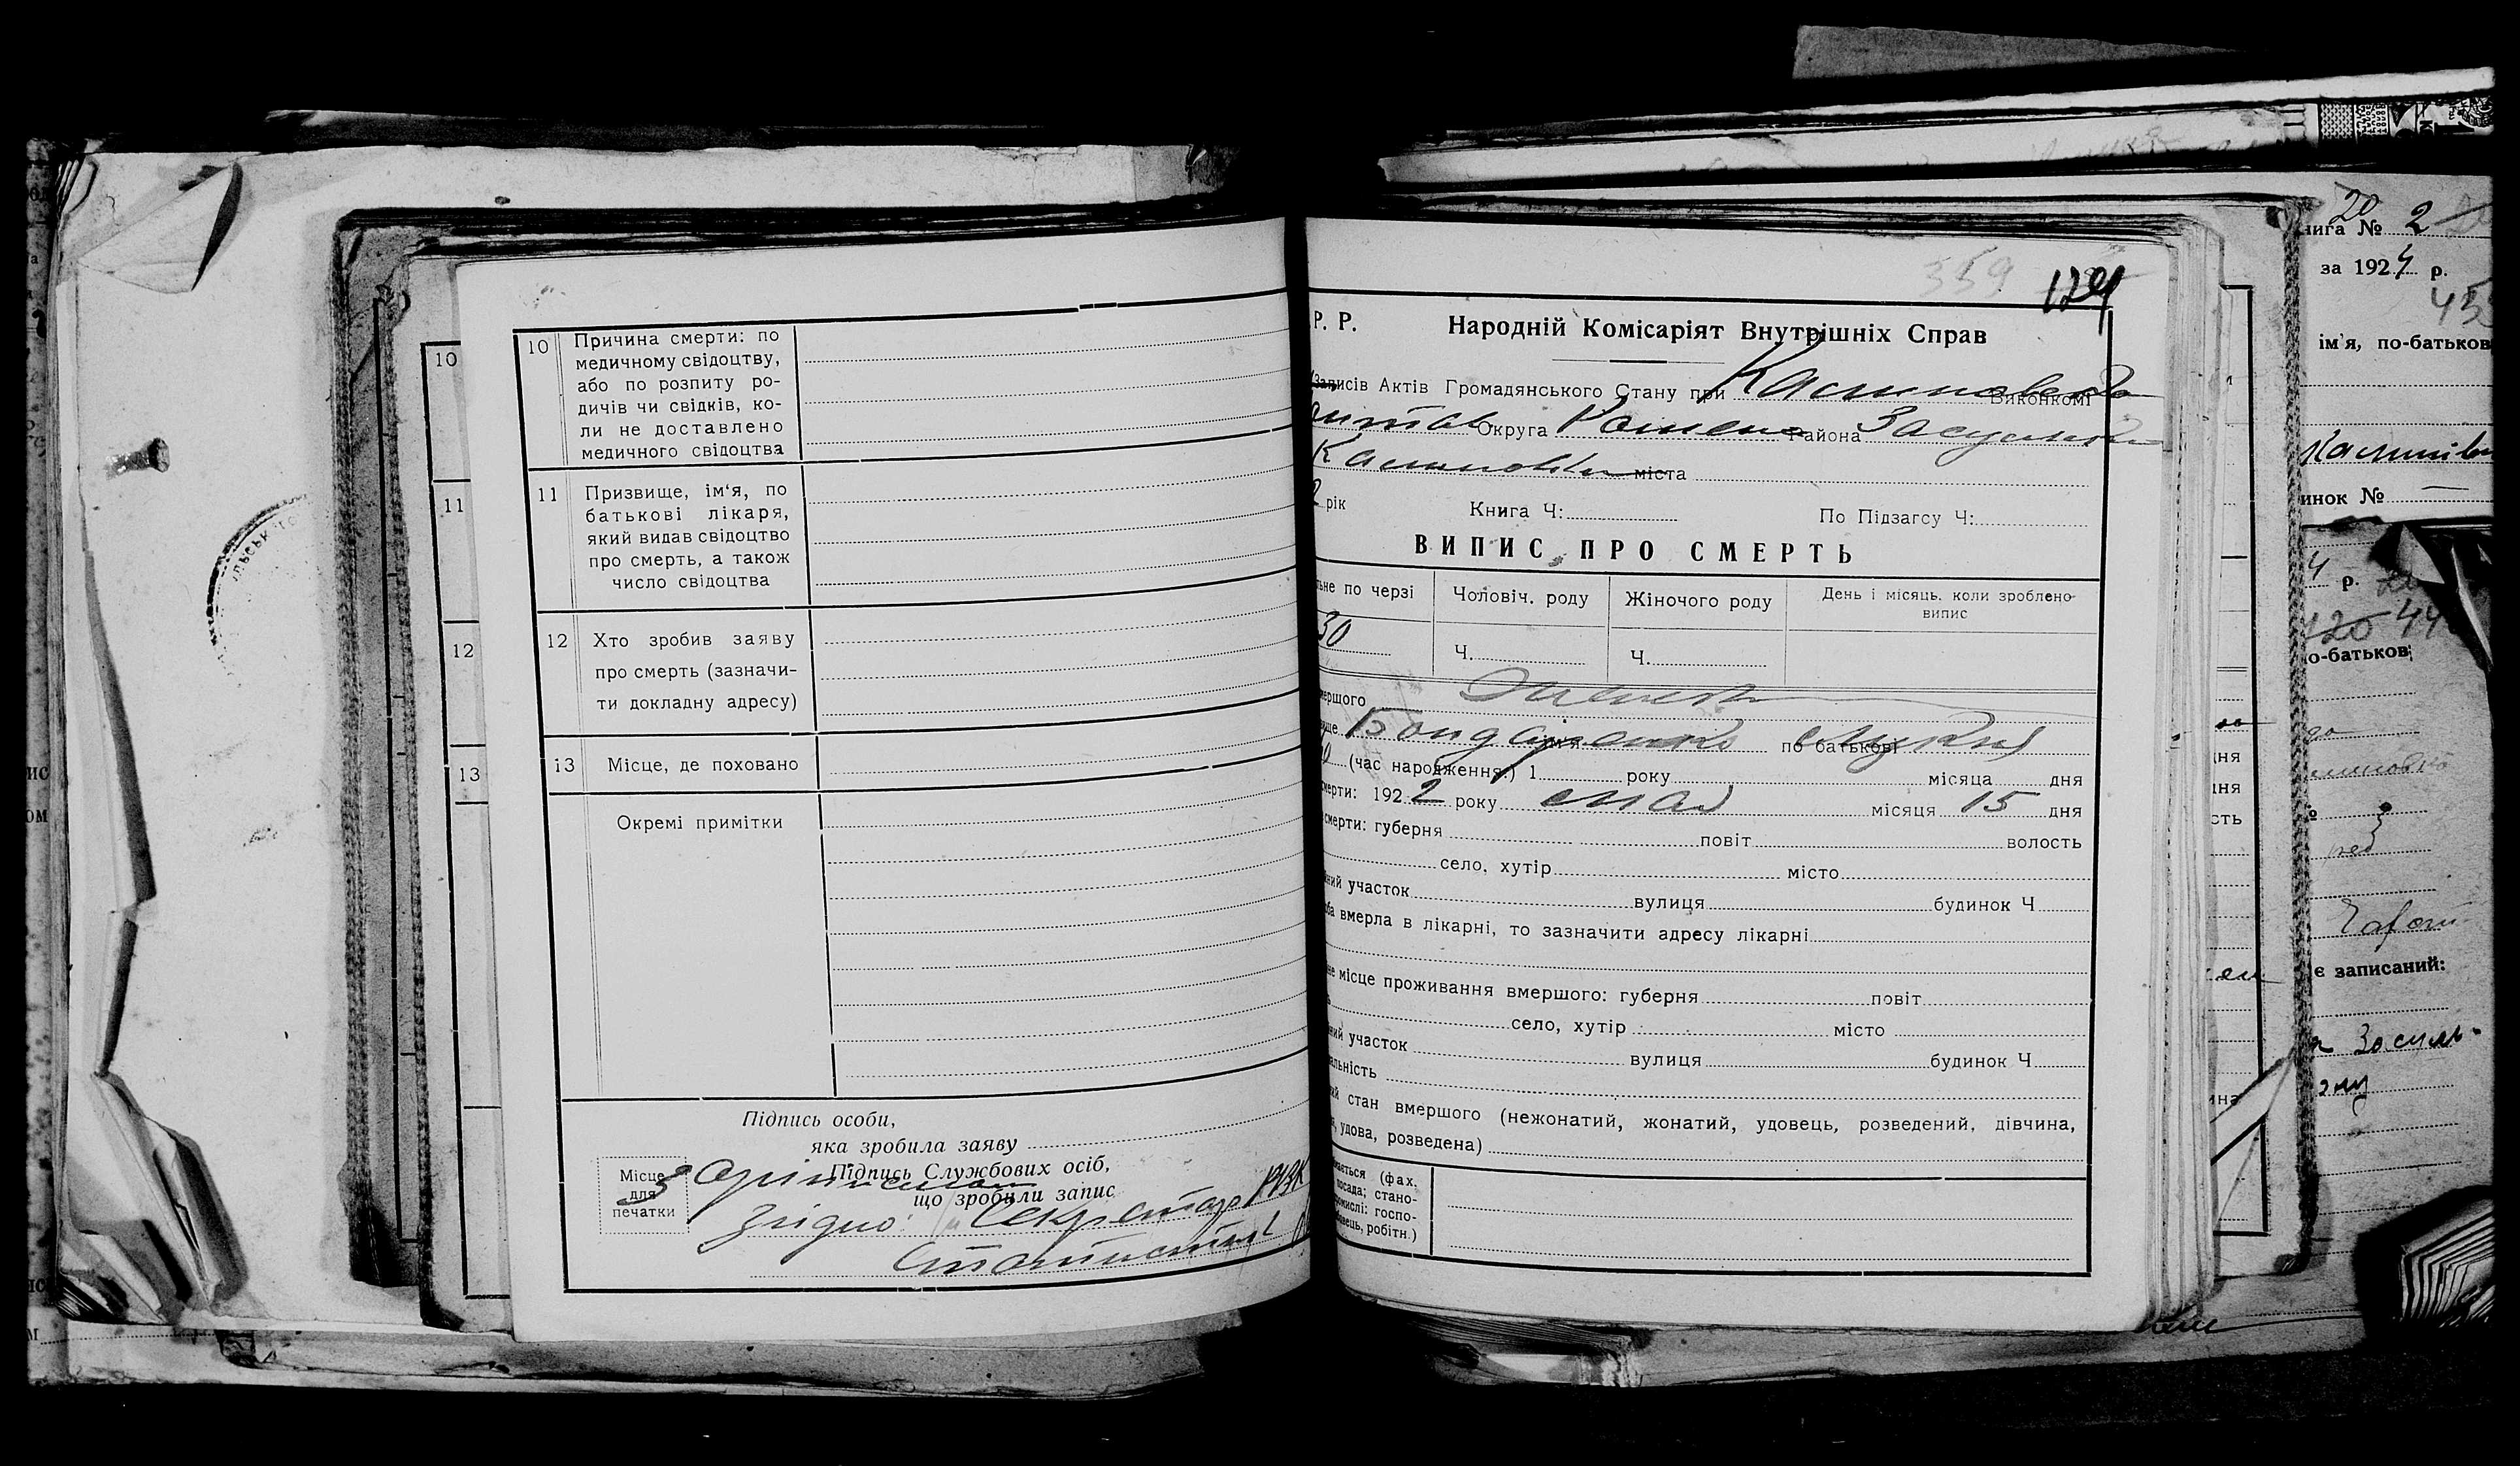 10 Причина смерти: по
медичному свідоцтву,
або по розпиту ро-
дичів чи свідків, ко-
ли не доставлено
медичного свідоцтва
11 Призвище, ім‘я, по
батькові лікаря,
який видав свідоцтво
про смерть, а також
число свідоцтва
12 Хто зробив заяву
про смерть (зазначи-
ти докладну адресу)
13 Місце, де поховано
Окремі примітки
Підпись особи,
яка зробила заяву
Підпись Службових осіб,
що зробили запис
Місце
для
печатки
З оригіналом
Згідно: Секретарь РВК
Статистик
10
11
12
13
359
129
Р. Р. Народній Комісаріят Внутрішніх Справ
Записів Актів Громадянського Стану при Виконкомі
Округа Ромен Района Засульск
міста
2 рік Книга Ч: По Підзагсу Ч:
ВИПИС ПРО СМЕРТЬ
по черзі Чоловіч. роду Жіночого роду День і місяць, коли зроблено
випис
30 Ч. Ч.
мершого
Бондаренко імя по батькові
(час народження:) 1 року місяца дня
смерти: 1922 року мая місяця 15 дня
смерти: губерня повіт волость
село, хутір місто
участок вулиця будинок Ч
вмерла в лікарні, то зазначити адресу лікарні
місце проживання вмершого: губерня повіт
село, хутір місто
участок вулиця будинок Ч
стан вмершого (нежонатий, жонатий, удовець, розведений, дівчина,
удова, розведена)
(фах,
посада; стано-
госпо-
робітн.)
20
№ 2
за 1924 р.
45
ім'я, по-батьков
№
р.
120 44
о-батьков
є записаний:
Засуль-